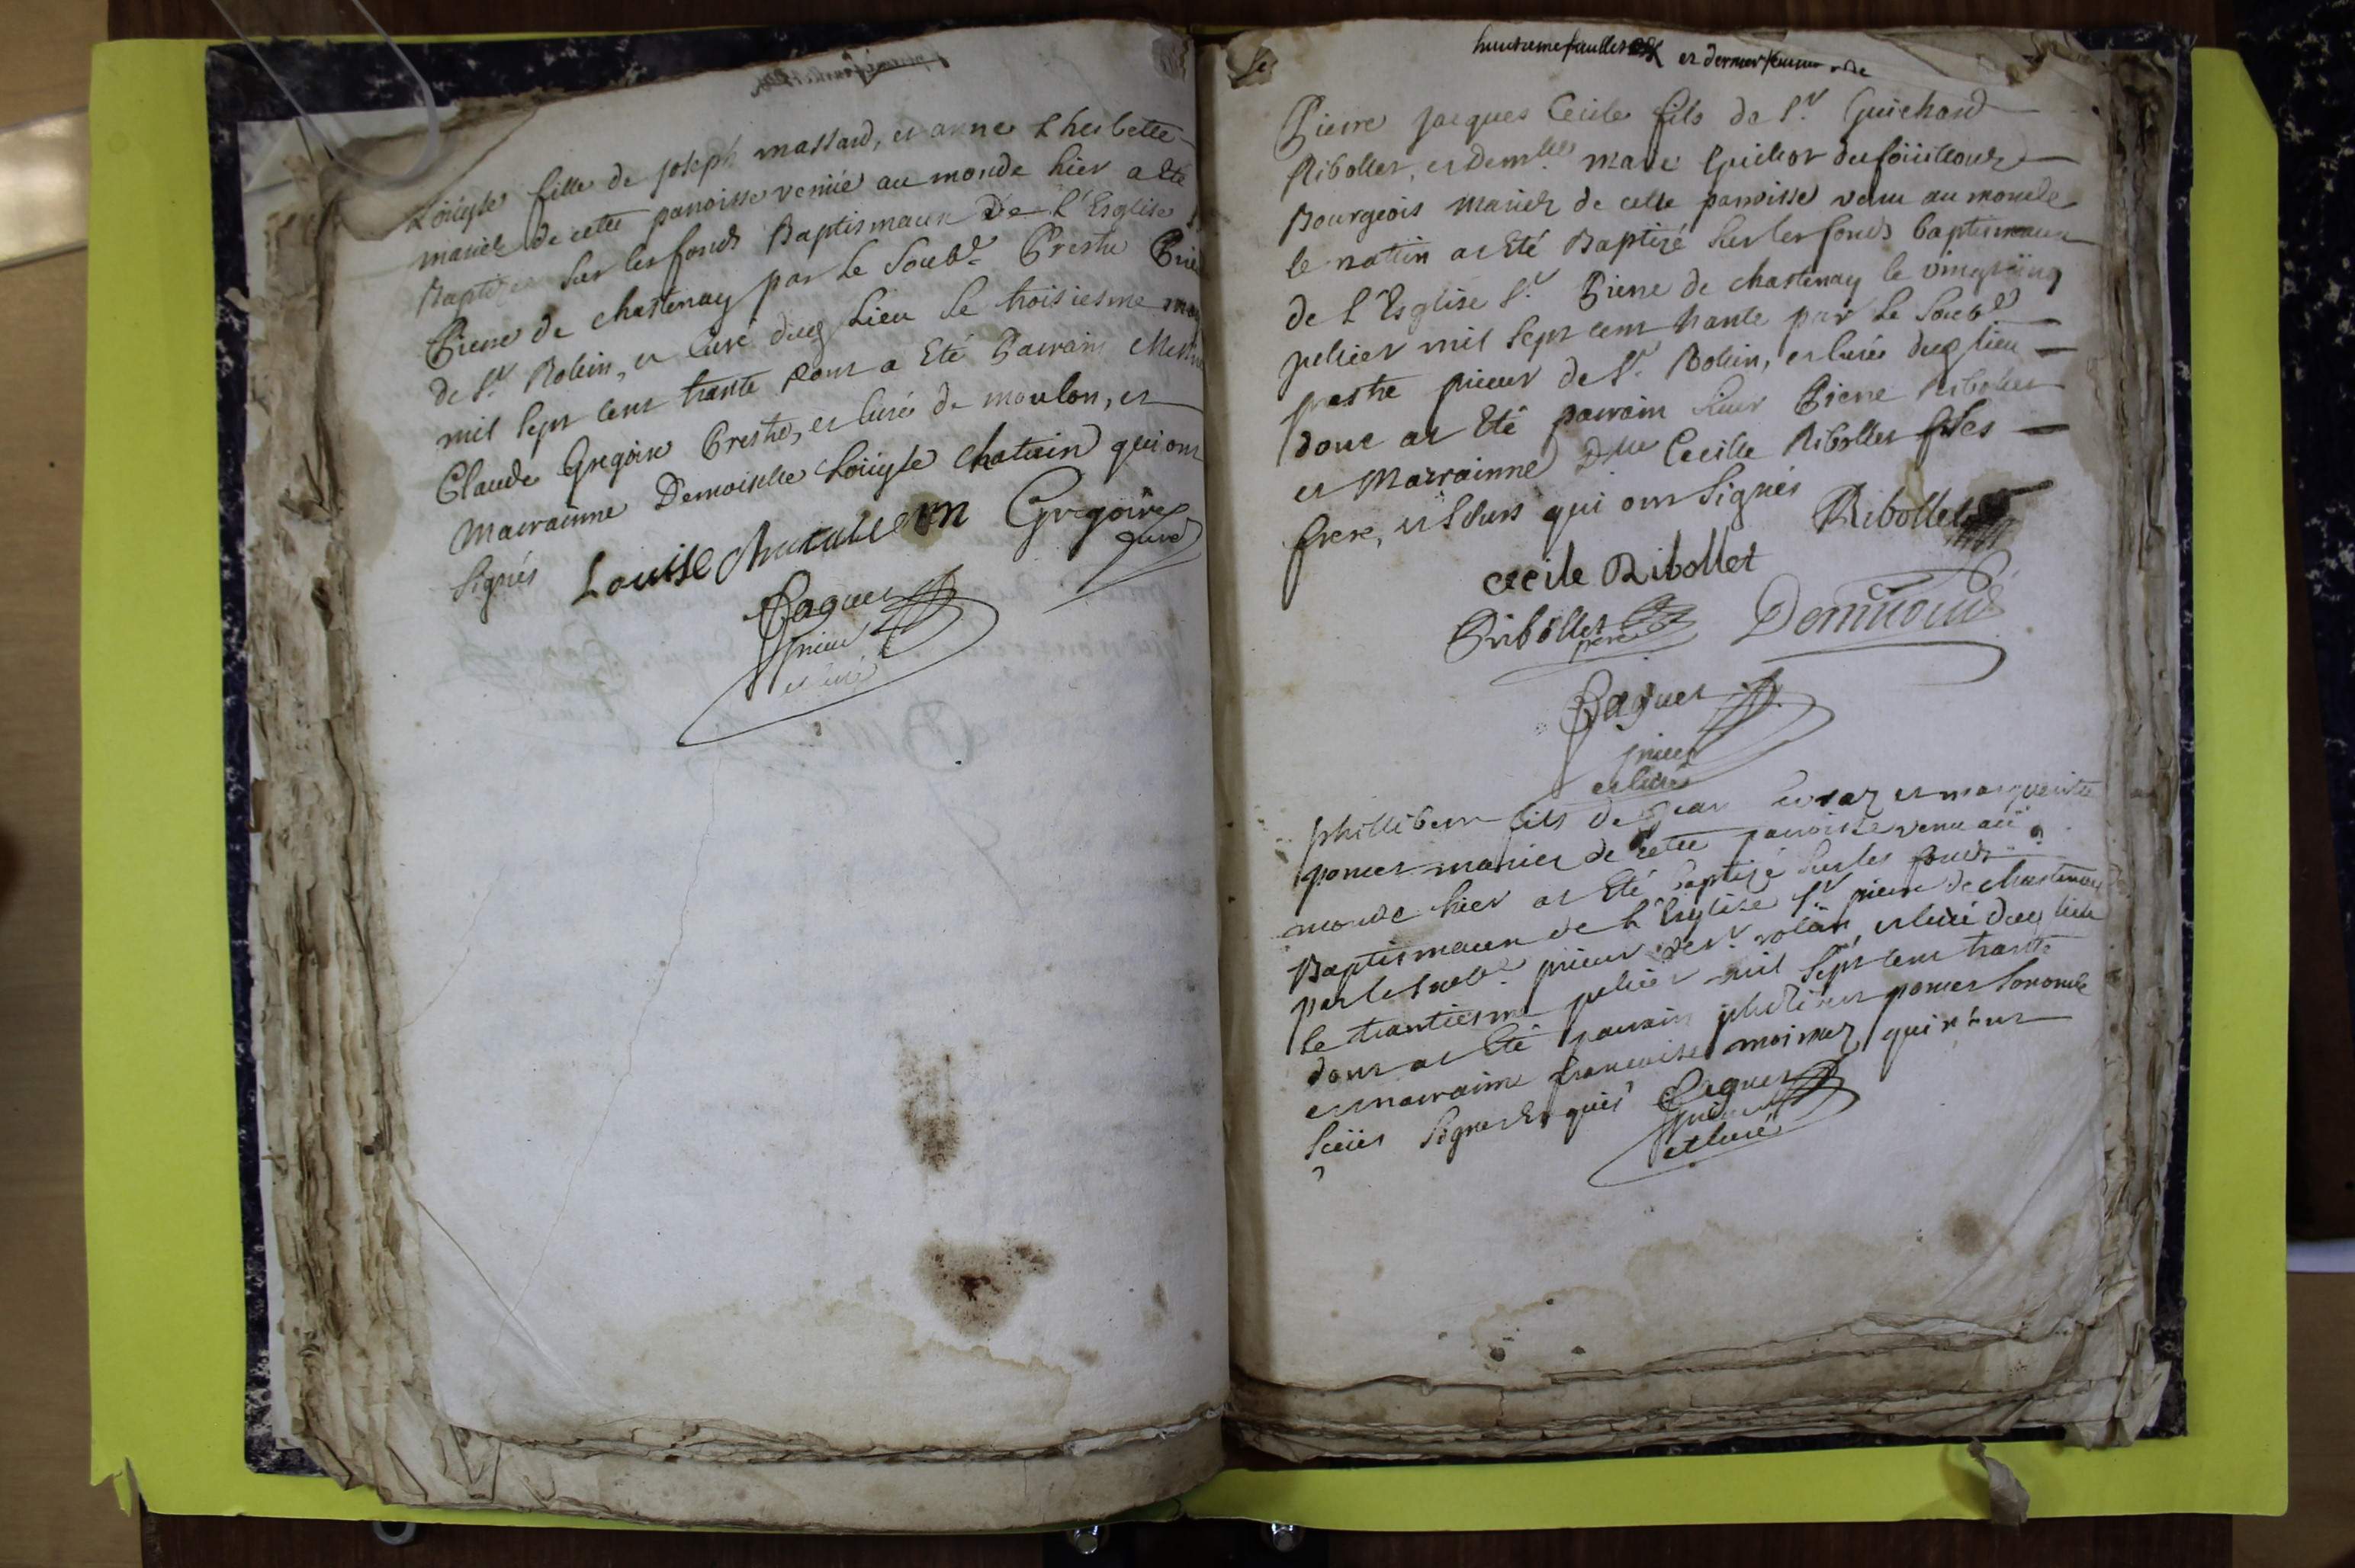 Loüyse fille de joseph massard, et anne Lherbette
mariéz de cette paroisse venüe au monde hier a été
Baptizée sur les fonds Baptismaux de L'Esglise
Pierre de chastenay par le Soubd. Prestre
de St. Robin, et Curé dud Lieu le troisiesme
mil sept cent trante dont a Eté Parrain
Claude Gregoire Prestre, et Curé de moulon, et
Marrainne Demoiselle Loüyse chatain qui ont
Signés Louise Gregoire
curé
Paquet
prieur
et curé
huictieme feuillet et dernier
Pierre Jacques Cecile fils de Sr. Guichard
Ribollet, et demlle marie
Bourgeois mariéz de cette parroisse venu au monde
le matin at Eté Baptizé sur les fonds baptismaux
de L'Esglise St. Pierre de chastenay le vingtcinq
juliet mil sept cent trante par le Soubd
prestre prieur de St. Robin, et curé dud lieu
dont at Eté parrain sieur Pierre Ribollet
et Marrainne Dlle Cecille Ribollet ses
frere, et Seurs qui ont Signés Ribollet
cecile Ribollet
Ribollet
pere
Paquet
prieur
et curé
phillibert fils de Jean et marguerite
poncet mariéz de cette paroisse venu aü
monde hier at Eté baptizé sur les fonds
Baptismaux de L'Esglise St pierre de chastenay
par le Soubd. prieur de St. robin, et curé dud lieu
le trantiesme juliet mil sept cent trante
dont at Eté parrain philibert poncet son oncle
et marraine francoise qui n'ont
Sceües Signer Enquis Paquet
prieur
et curé